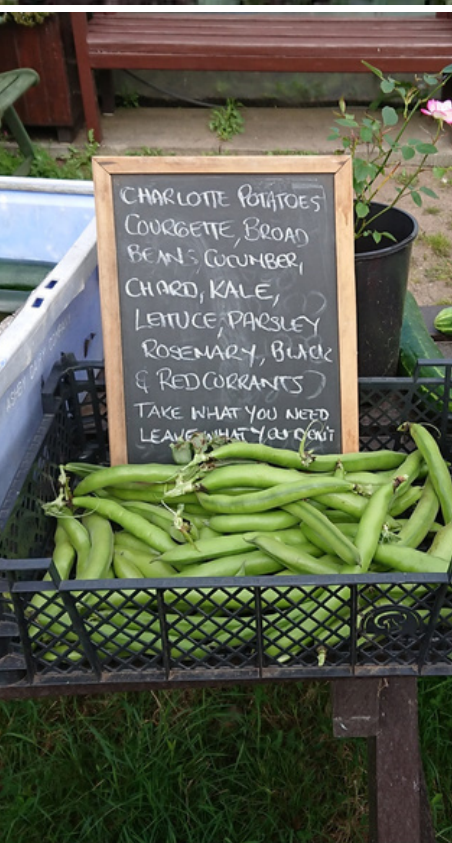 CHARLOTTE POTATOES
COURGETTE, BROAD
BEANS, CUCUMBER,
CHARD, KALE,
LETTUCE, PARSLEY
ROSEMARY, BLACK
& REDCURRANTS
TAKE WHAT YOU NEED
LEAVE WHAT YOU DON'T